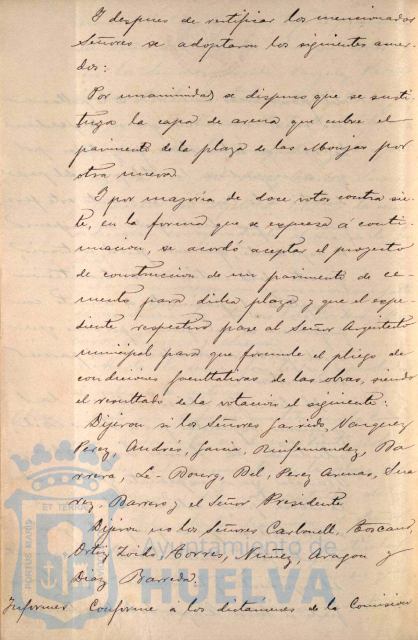 Y despues de rectificar los mencionados
Señores se adoptaron los siguientes acuer-
dos:
Por unanimidad se dispuso que se susti-
tuya la capa de arena que cubre el
pavimento de la plaza de las Monjas por
otra nueva.
Y por mayoría de doce votos contra sie-
te, en la forma que se expresa á conti-
nuacion, se acordó aceptar el proyecto
de construccion de un pavimento de ce-
mento para dicha plaza y que el expe-
diente respectivo pase al Señor Arquitecto
municipal para que formule el pliego de
condiciones facultativas de las obras, siendo
el resultado de la votacion el siguiente:
Dijeron si los Señores Garrido, Vazquez
Perez, Andrés, Garcia, Ruifernandez, Ba-
rrera, Le-Bourg, Bel, Perez Arenas, Sua-
rez, Barrero y el Señor Presidente
Dijeron no los Señores Carbonell, Toscano,
Ortiz, Toribio, Torres, Nuñez, Aragon y
Diaz Barreda.
Informes Conforme a los dictamenes de la Comision
ET TERRAE
PORTUS MARIS
Ayuntamiento de
HUELVA